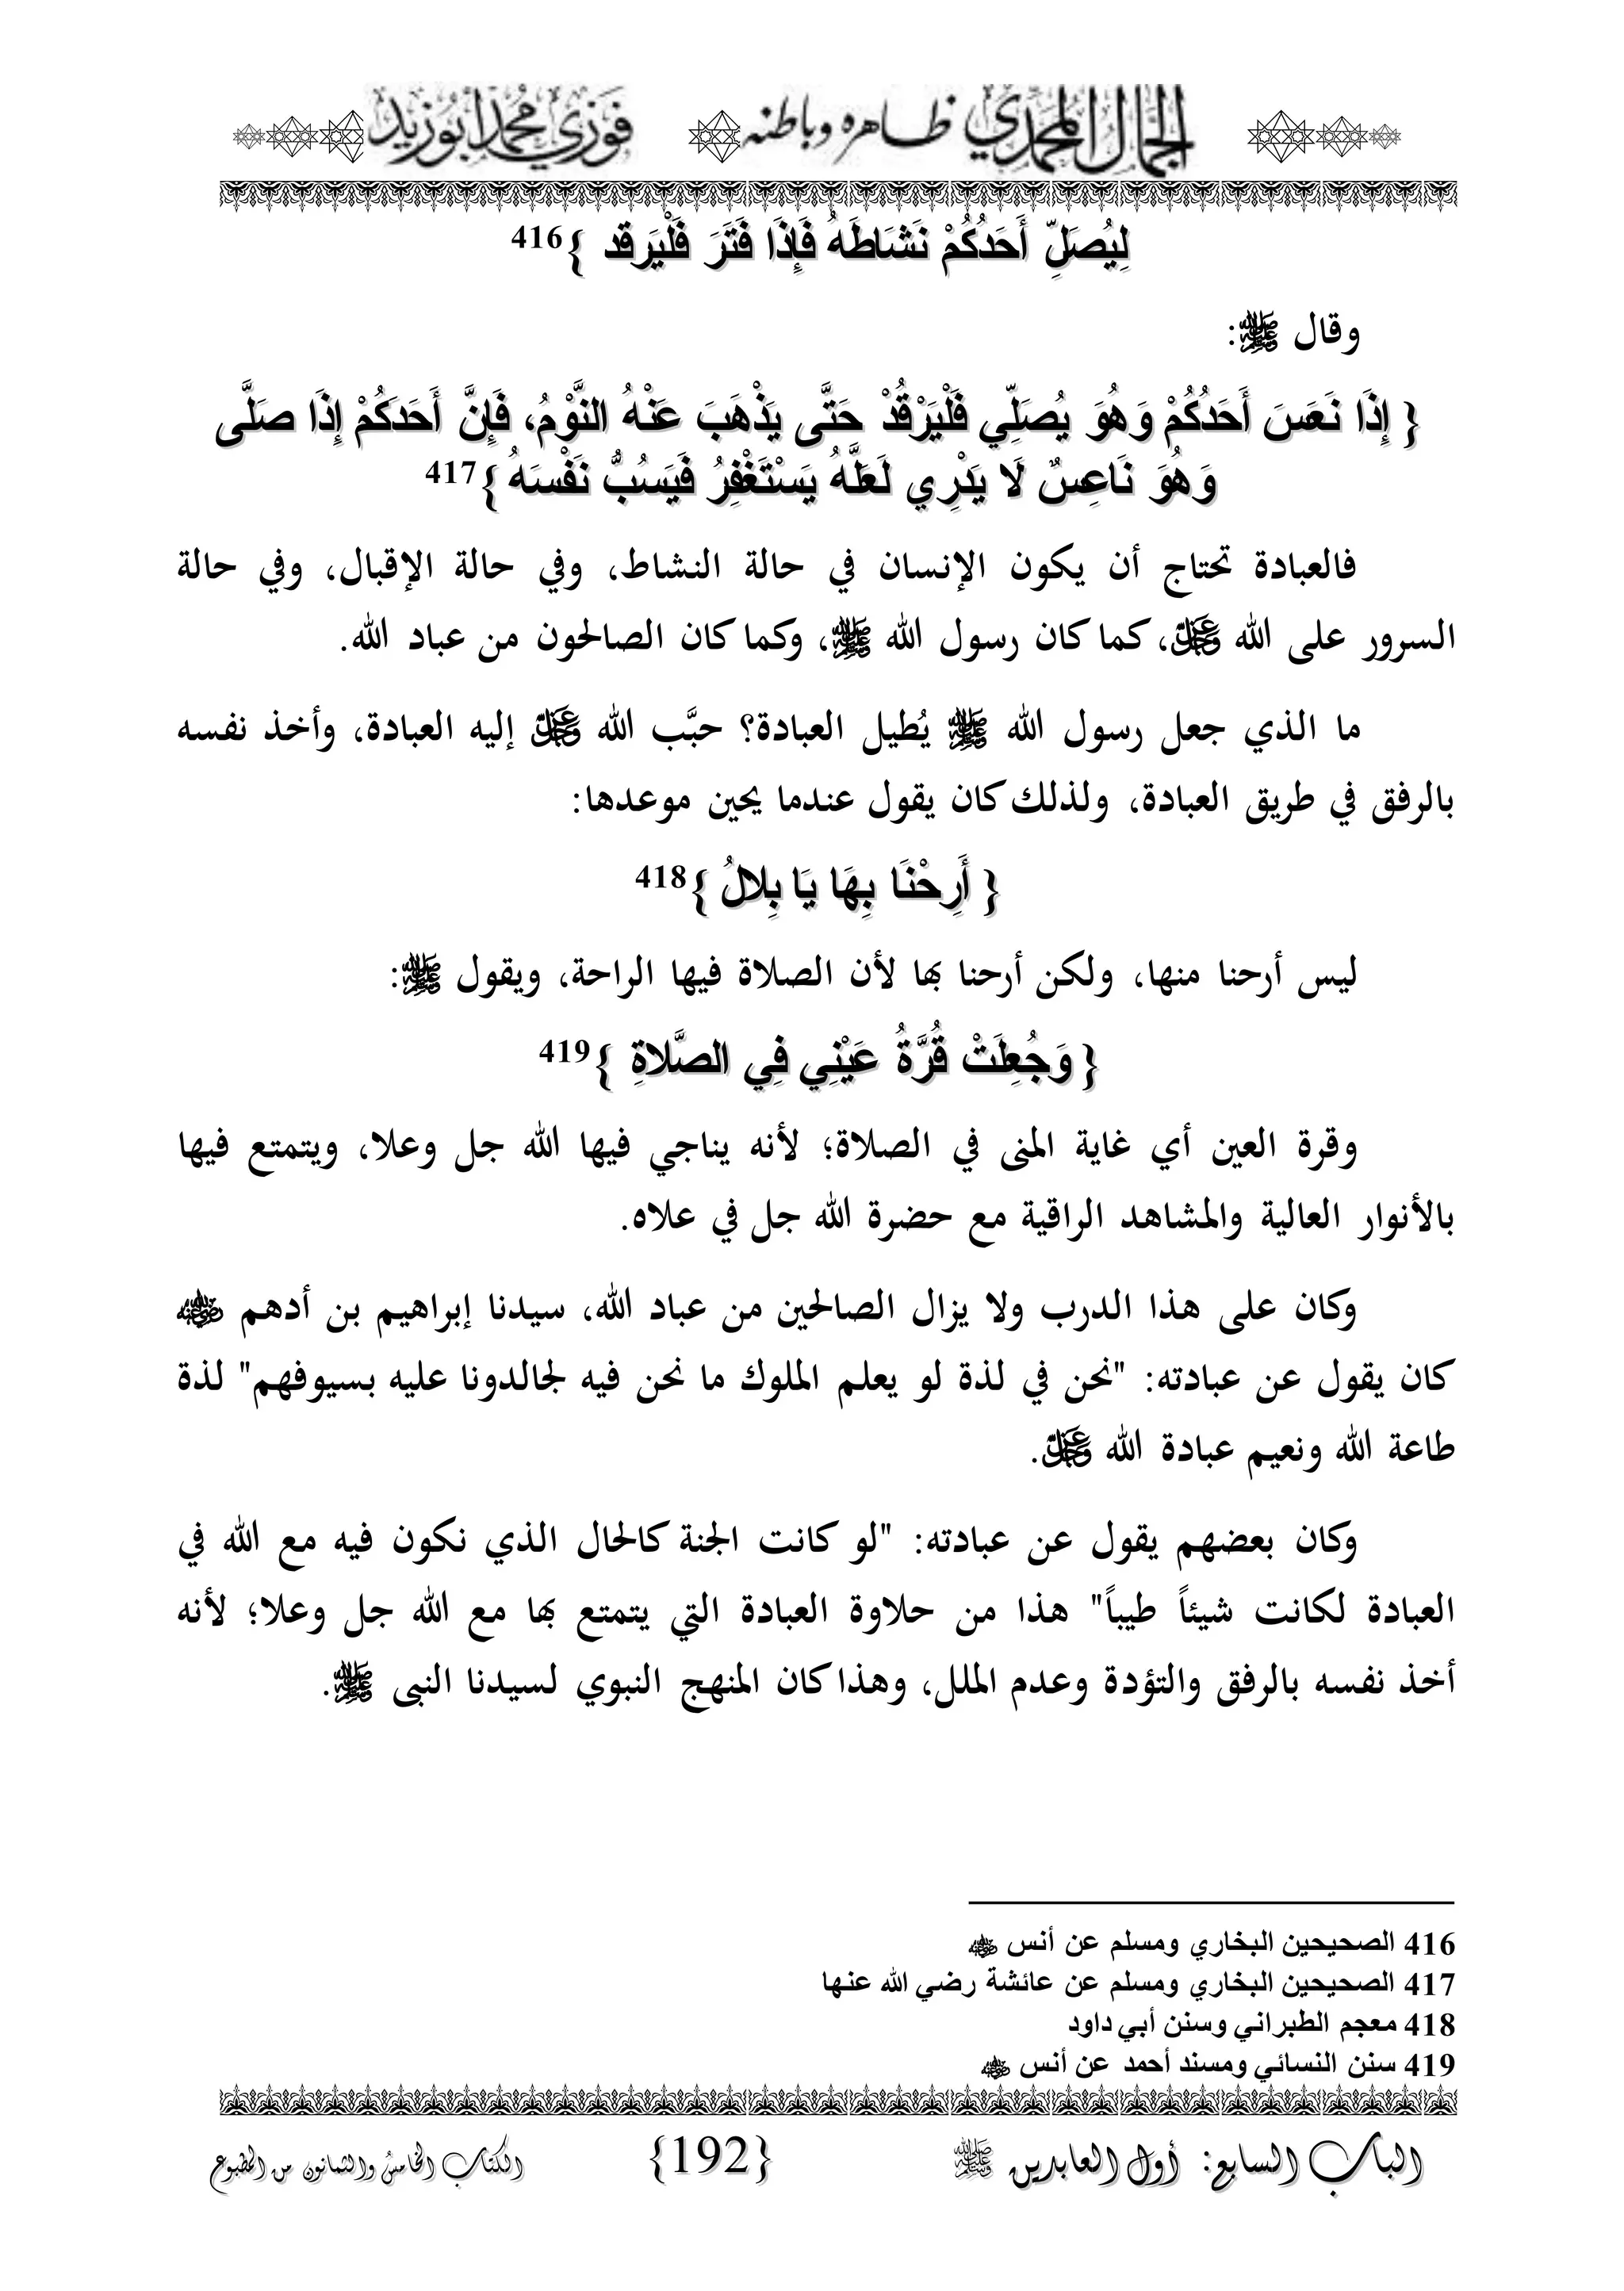 الجمال المحمدي ظاهره وباطنه فوزي محمد أبوزيد
لِيُصَلِّ أَحَدُكُمْ نَشَاطَهُ فَإِذَا فَتَرَ فَلْيَرقد }416
وقال ﷺ:
{ إِذَا نَعَسَ أَحَدُكُمْ وَهُوَ يُصَلِّي فَلْيَرْقُدْ حَتَّى يَذْهَبَ عَنْهُ النَّوْمُ، فَإِنَّ أَحَدَكُمْ إِذَا صَلَّى
وَهُوَ نَاعِسٌ لَا يَدْرِي لَعَلَّهُ يَسْتَغْفِرُ فَيَسُبُّ نَفْسَهُ }417
فالعبادة تحتاج أن يكون الإنسان في حالة النشاط، وفي حالة الإقبال، وفي حالة
السرور على الله عز وجل، كما كان رسول الله ﷺ، وكما كان الصالحون من عباد الله.
ما الذي جعل رسول الله ﷺ يُطيل العبادة؟ حبَّب الله عز وجل إليه العبادة، وأخذ نفسه
بالرفق في طريق العبادة، ولذلك كان يقول عندما يحين موعدها:
{ أَرِحْنَا بِهَا يَا بِلالُ }418
ليس أرحنا منها، ولكن أرحنا بها لأن الصلاة فيها الراحة، ويقول ﷺ:
{ وَجُعِلَتْ قُرَّةُ عَيْنِي فِي الصَّلاةِ }419
وقرة العين أي غاية المنى في الصلاة؛ لأنه يناجي فيها الله جل وعلا، ويتمتع فيها
بالأنوار العالية والمشاهد الراقية مع حضرة الله جل في علاه.
وكان على هذا الدرب ولا يزال الصالحين من عباد الله، سيدنا إبراهيم بن أدهم رضي الله عنه
كان يقول عن عبادته: "نحن في لذة لو يعلم الملوك ما نحن فيه لجالدونا عليه بسيوفهم" لذة
طاعة الله ونعيم عبادة الله عز وجل.
وكان بعضهم يقول عن عبادته: "لو كانت الجنة كالحال الذي نكون فيه مع الله في
العبادة لكانت شيئاً طيباً" هذا من حلاوة العبادة التي يتمتع بها مع الله جل وعلا؛ لأنه
أخذ نفسه بالرفق والتؤدة وعدم الملل، وهذا كان المنهج النبوي لسيدنا النبى ﷺ.
416 الصحيحين البخاري ومسلم عن أنس رضي الله عنه
417 الصحيحين البخاري ومسلم عن عائشة رضي الله عنها
418 معجم الطبراني وسنن أبي داود
419 سنن النسائي ومسند أحمد عن أنس رضي الله عنه
الباب السابع: أول العابدين ﷺ {192} الكتاب الخامس والثمانون من المطبوع